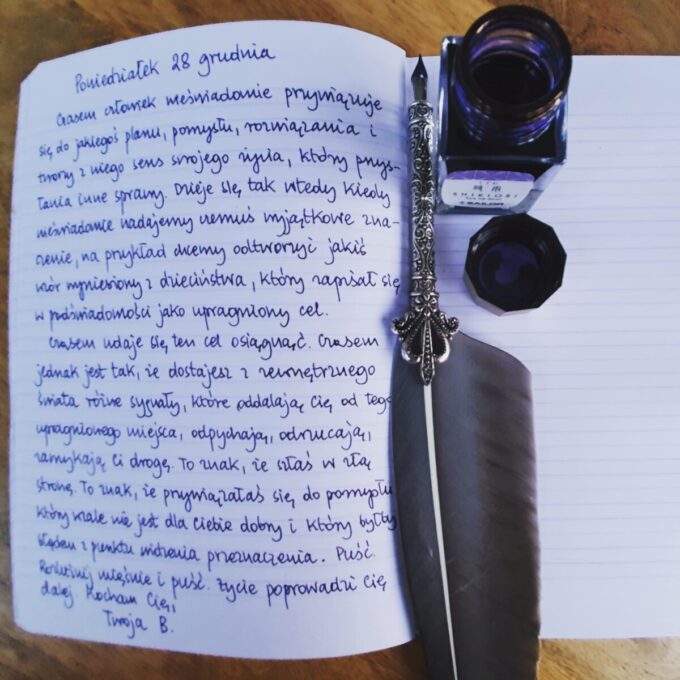 Poniedziałek 28 grudnia
Czasem człowiek nieświadomie przywiązuje
się do jakiegoś planu, pomysłu, rozwiązania i
tworzy z niego sens swojego życia, który przys-
łania inne sprawy. Dzieje się tak wtedy kiedy
nieświadomie nadajemy czemuś wyjątkowe zna-
czenie, na przykład chcemy odtworzyć jakiś
wzór wyniesiony z dzieciństwa, który zapisał się
w podświadomości jako upragniony cel.
Czasem udaje się ten cel osiągnąć. Czasem
jednak jest tak, że dostajesz z zewnętrznego
świata różne sygnały, które oddalają Cię od tego
upragnionego miejsca, odpychają, odrzucają,
zamykają Ci drogę. To znak, że szłaś w złą
stronę. To znak, że przywiązałaś się do pomysłu
który wcale nie jest dla Ciebie dobry i który byłby
błędem z punktu widzenia przeznaczenia. Puść.
Rozluźnij mięśnie i puść. Życie poprowadzi Cię
dalej. Kocham Cię,
Twoja B.
SHIKIORI
SAILOR